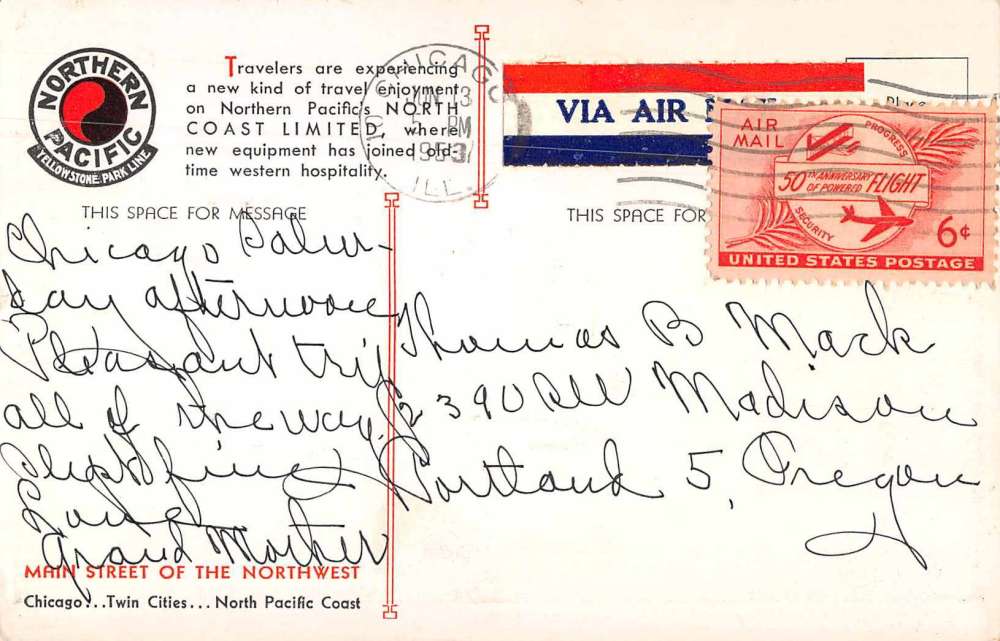 NORTHERN
PACIFIC
YELLOWSTONE PARK LINE
Travelers are experiencing
a new kind of travel enjoyment
on Northern Pacific's NORTH
COAST LIMITED, where
new equipment has joined old-
time western hospitality.
CHICAGO
PM
ILL.
VIA AIR
AIR
MAIL
PROGRESS
50TH ANNIVERSARY
OF POWERED
FLIGHT
SECURITY
6¢
UNITED STATES POSTAGE
THIS SPACE FOR MESSAGE
THIS SPACE FOR
Chicago Satur-
day afternoon
Pleasant trip
all of the way.
Slept fine
Love
Grand Mother
Thomas B Mack
2390 SW Madison
Portland 5, Oregon
MAIN STREET OF THE NORTHWEST
Chicago...Twin Cities...North Pacific Coast